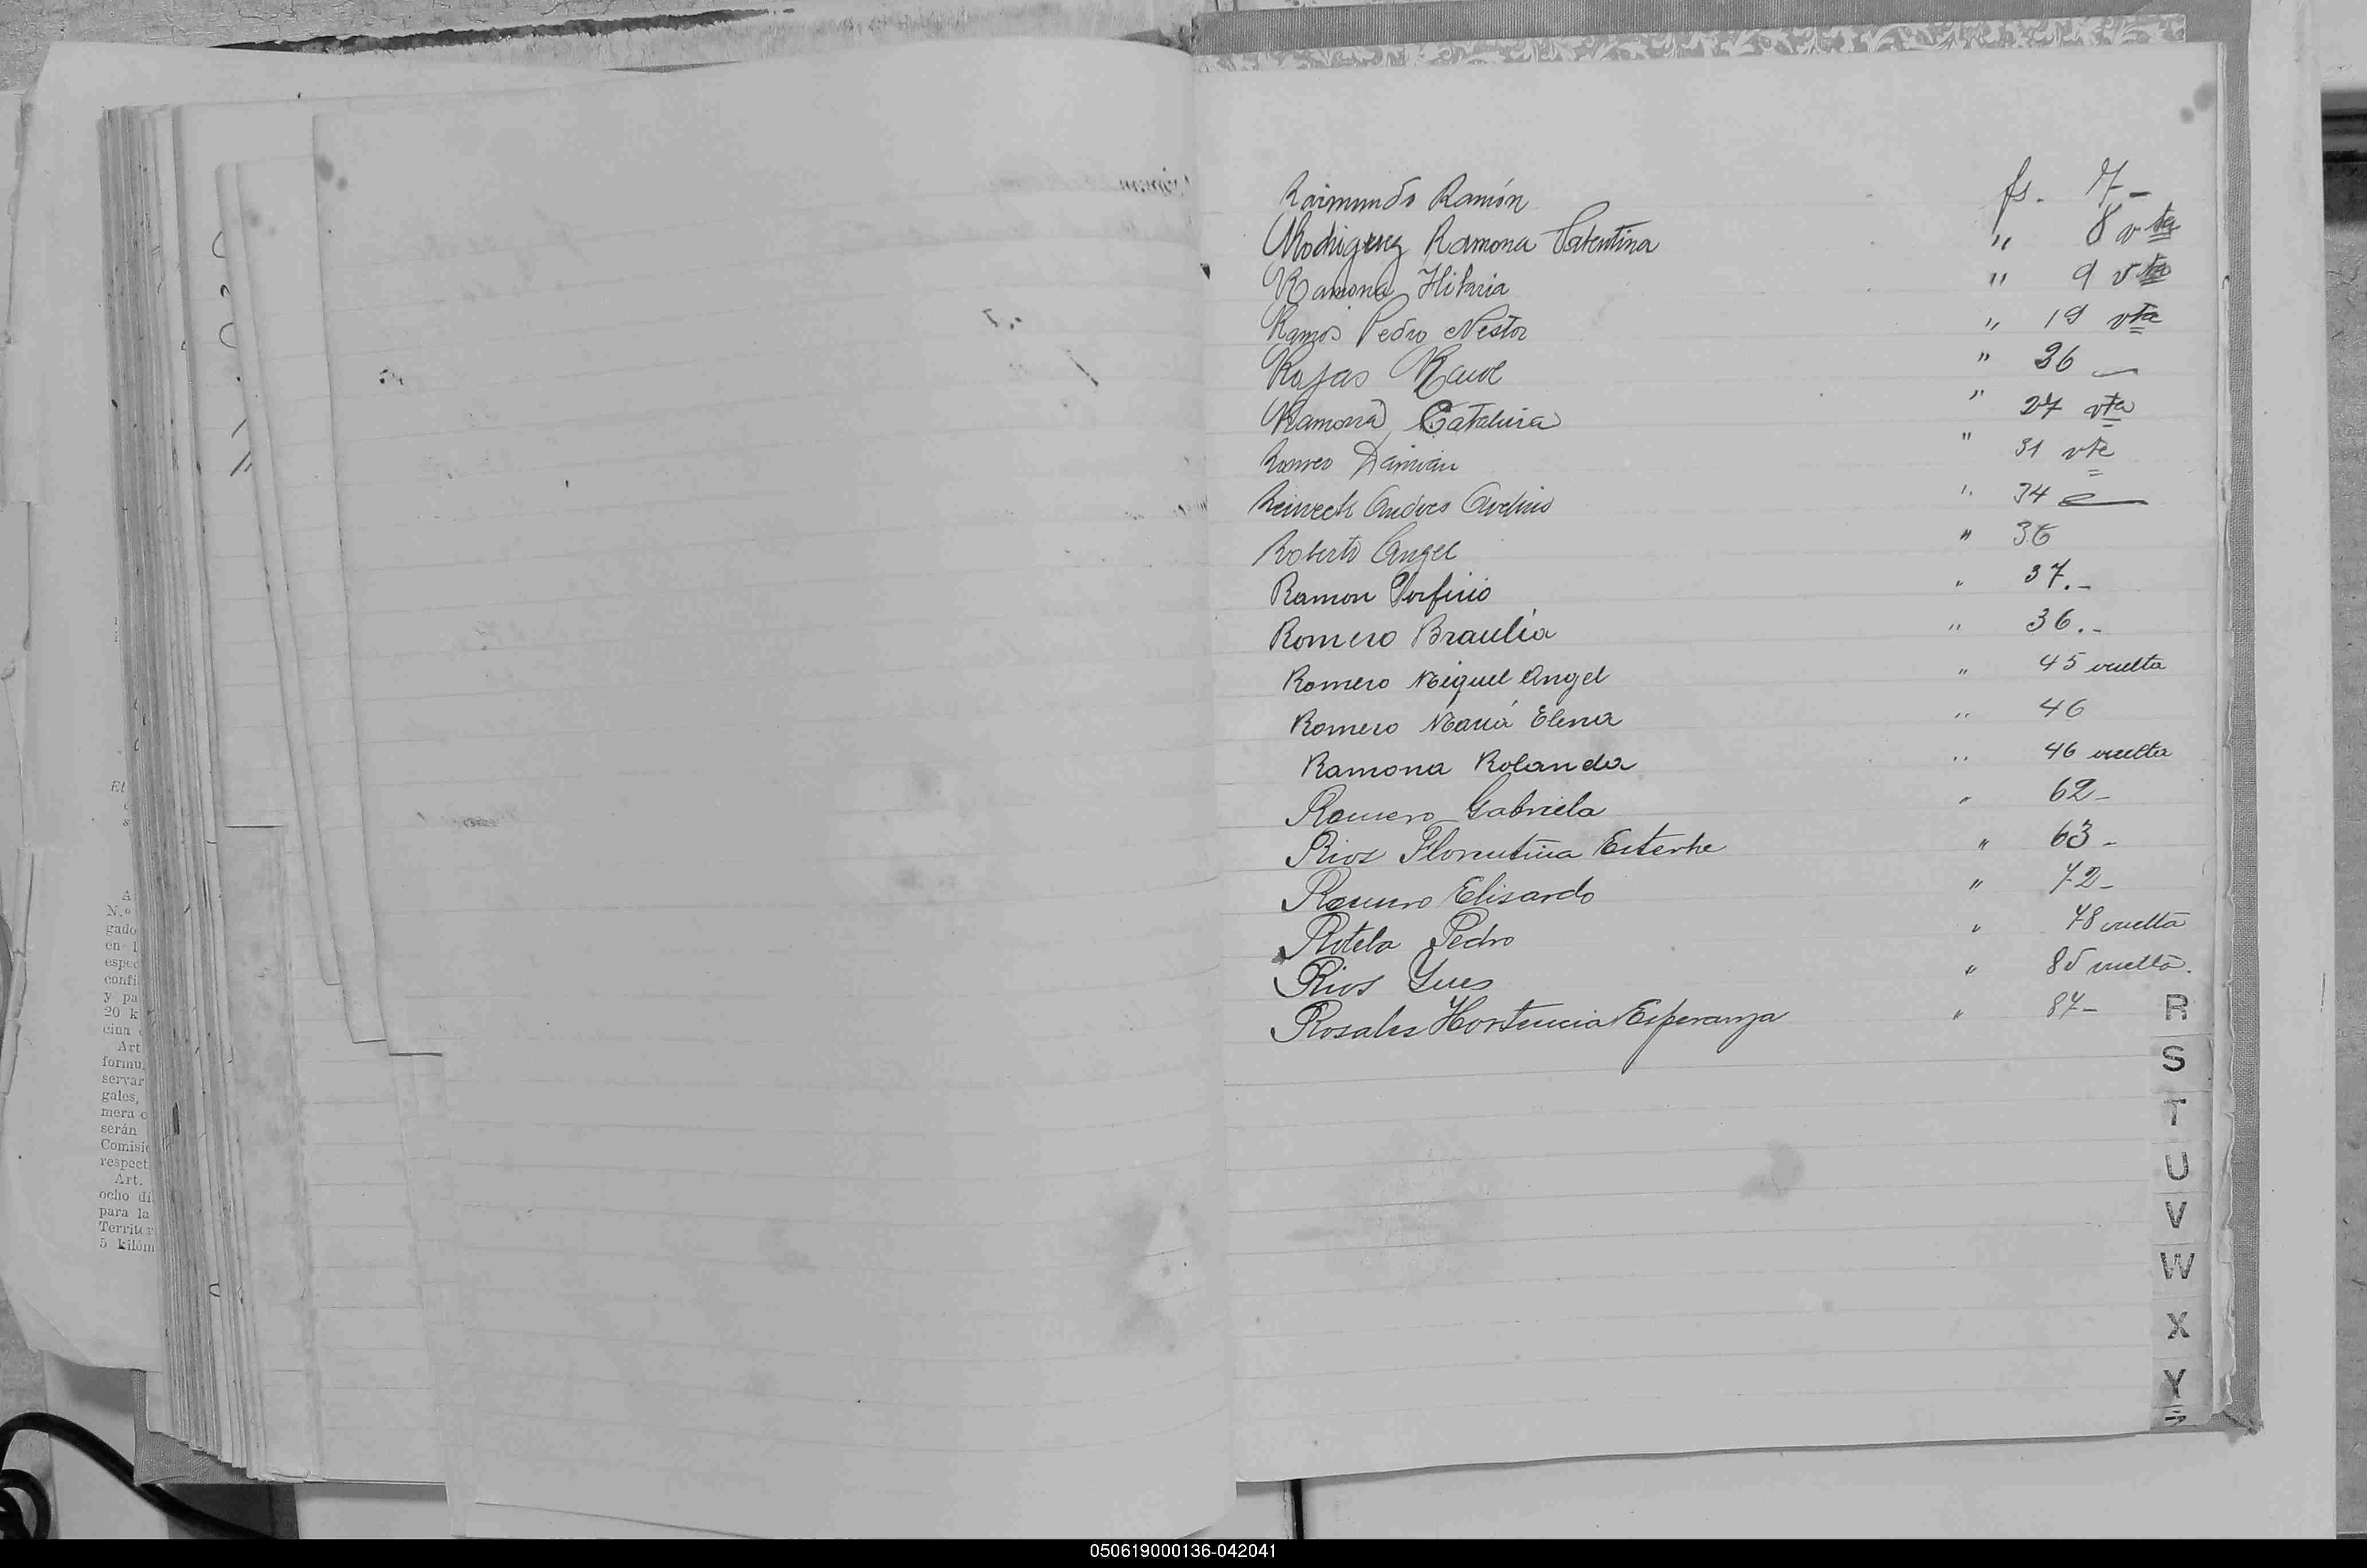 Raimundo Ramón fs. 7-
Rodriguez Ramona Valentina " 8 vta
Ramona Hilaria " 9 vta
Ramos Pedro Nestor " 19 vta
Rojas Raul " 26
Ramona Catalina " 27 vta
Romeo Damian " 31 vta
Andres Avelino " 34
Roberto Angel " 36
Ramon Porfirio " 37.-
Romero Braulia " 36.-
Romero Miguel Angel " 45 vuelta
Romero María Elena " 46
Ramona Rolanda " 46 vuelta
Romero Gabriela " 62-
Rios Florentina Esterhe " 63-
Romero Elisardo " 72-
Rotela Pedro " 78 vuelta
Rios Ynes " 85 vuelta.
Rosales Hortencia Esperanza " 87-
R
S
T
U
V
W
X
Y
Z
El
A
N.º
gado
en l
espec
confi
y pa
20 k
cina
Art
formu
servar
gales,
mera c
serán
Comisi
respect
Art.
ocho dí
para la
Territor
5 kilóm
050619000136-042041